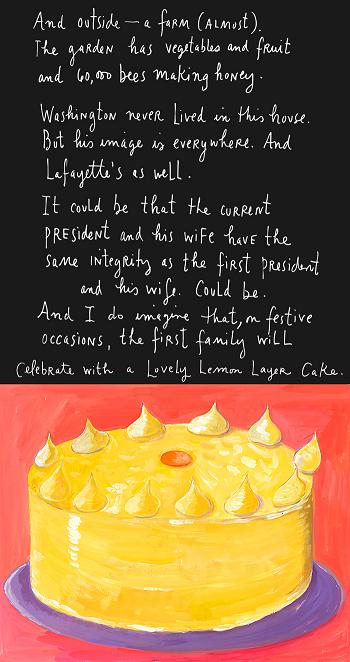 And outside — a farm (almost).
The garden has vegetables and fruit
and 60,000 bees making honey.
Washington never lived in this house.
But his image is everywhere. And
Lafayette's as well.
It could be that the current
president and his wife have the
same integrity as the first president
and his wife. Could be.
And I do imagine that, on festive
occasions, the first family will
celebrate with a Lovely Lemon Layer Cake.